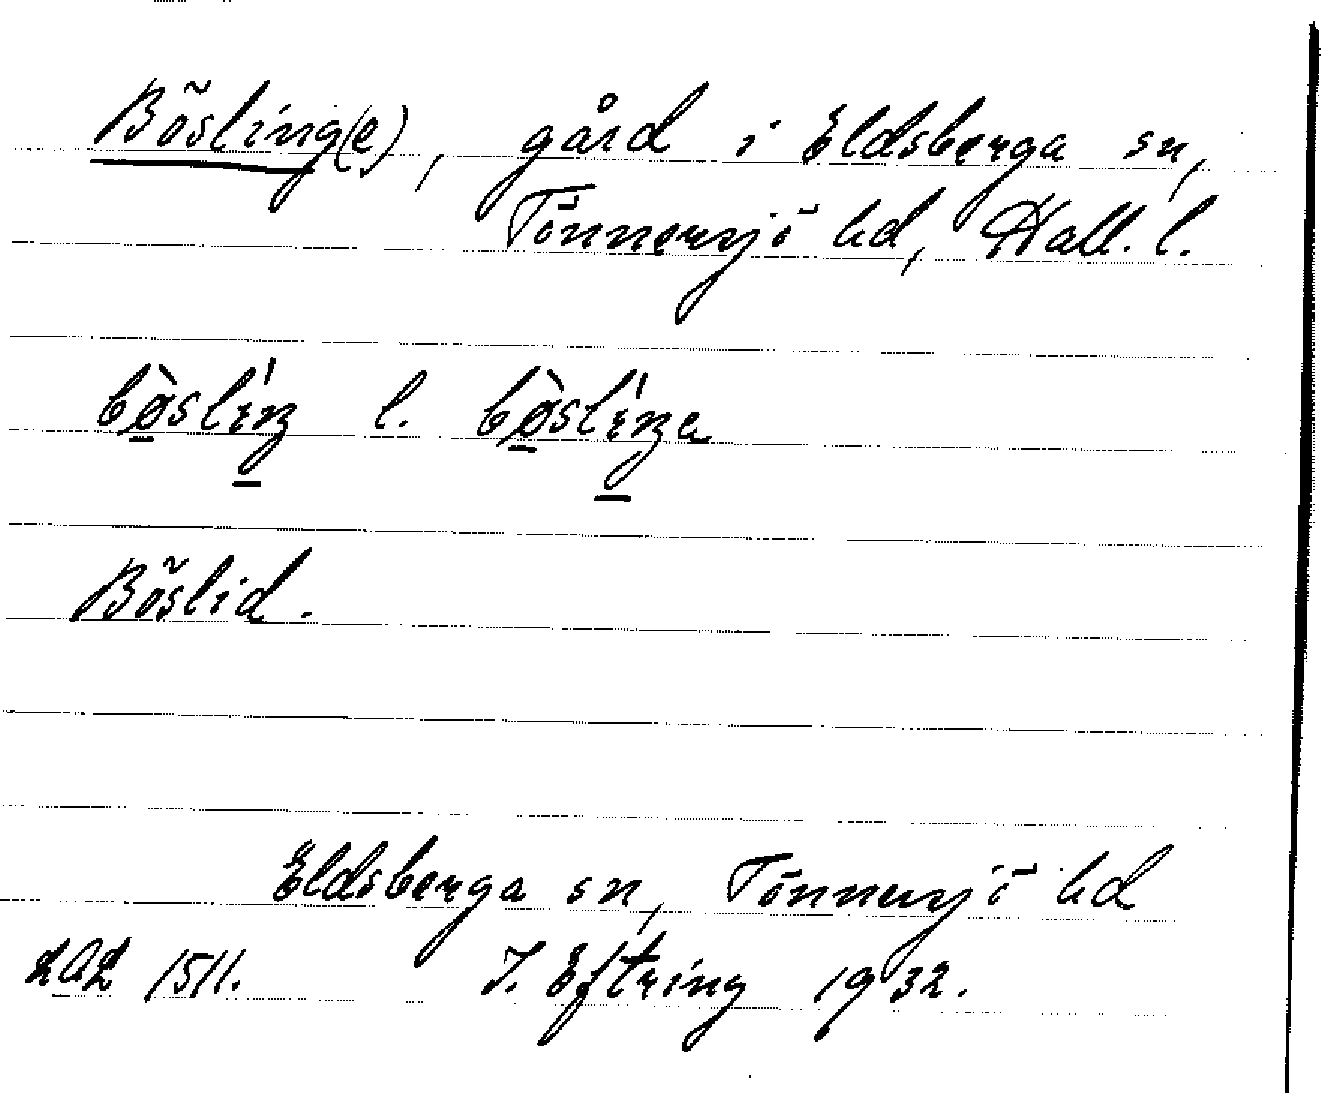 Bösling(e), gård i Eldsberga sn,
Tönnersjö hd, Hall. l.
bø̀slíŋ l. bø̀slíŋa
Böslid.
Eldsberga sn, Tönnersjö hd
LAL 1511. I. Eftring 1932.